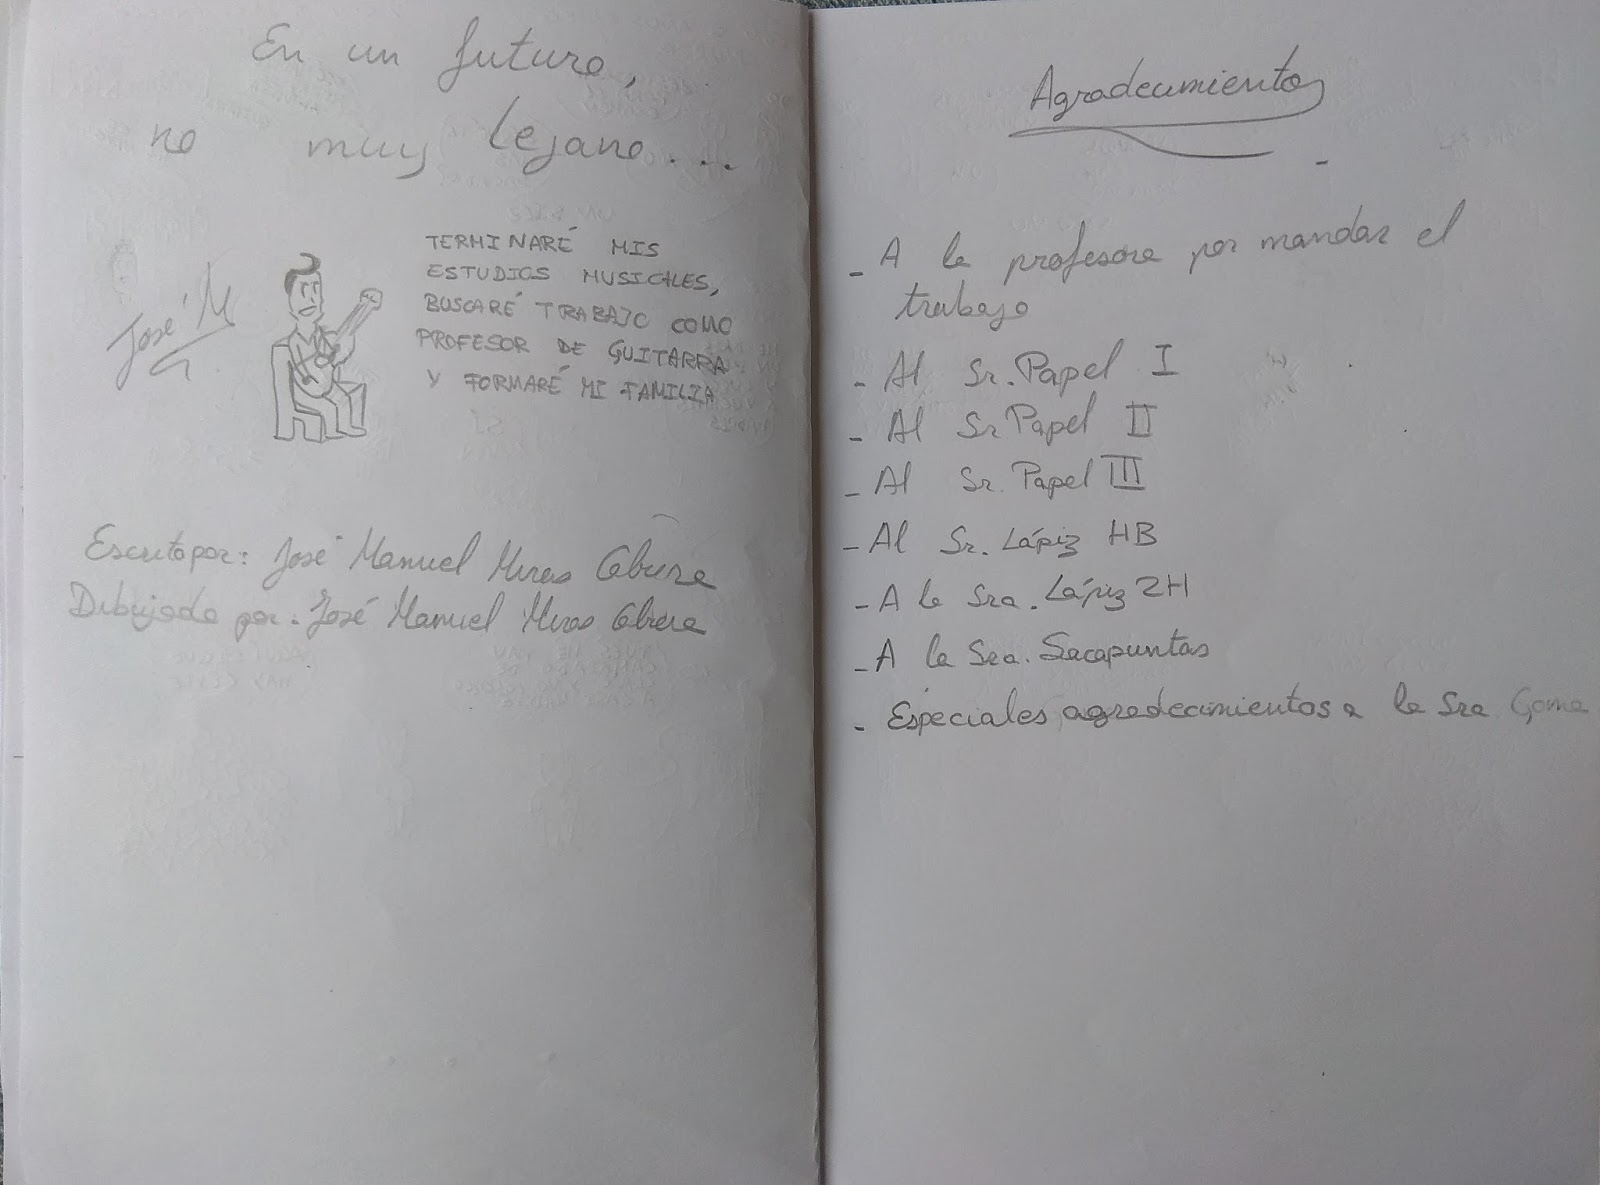 En un futuro,
no muy lejano...
TERMINARÉ MIS
ESTUDIOS MUSICALES,
BUSCARÉ TRABAJO COMO
PROFESOR DE GUITARRA
Y FORMARÉ MI FAMILIA
José M
Escrito por: José Manuel Miras Cabrera
Dibujado por: José Manuel Miras Cabrera
Agradecimientos
- A la profesora por mandar el
trabajo
- Al Sr. Papel I
- Al Sr. Papel II
- Al Sr. Papel III
- Al Sr. Lápiz HB
- A la Sra. Lápiz 2H
- A la Sra. Sacapuntas
- Especiales agradecimientos a la Sra Goma